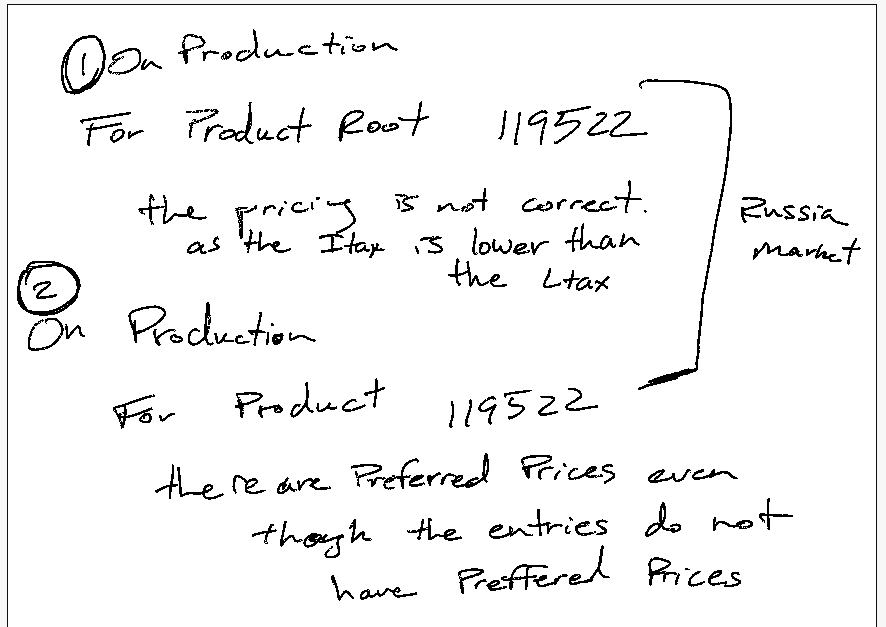 ① On Production
For Product Root 119522
the pricing is not correct.
as the Itax is lower than
the Ltax
Russia
market
②
On Production
For Product 119522
there are Preferred Prices even
though the entries do not
have Preffered Prices